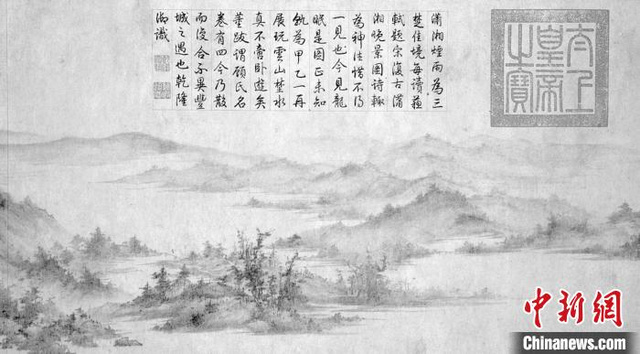 瀟湘煙雨為三
楚佳境每讀蘇
軾題宋復古瀟
湘晚景圖詩輒
為神往惜不得
一見也今見龍
眠是圖正未知
孰為甲乙一再
展玩雲山楚水
真不啻臥遊矣
董跋謂顧氏名
卷有四今乃散
而復合不異豐
城之遇也乾隆
御識
太上
皇帝
之寶
中新网
Chinanews.com